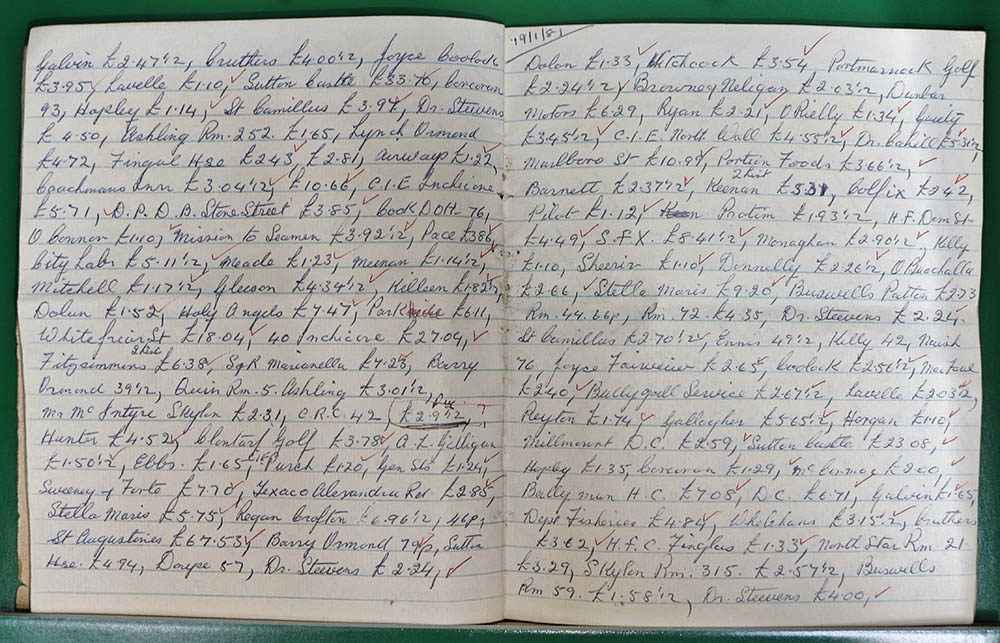 Galvin £2.47½, Cruthers £4.00½, Joyce Coolock
£3.95, Lavelle £1.10, Sutton Castle £33.70, Corcoran
93, Hopley £1.14, St Camillus £3.97, Dr. Steevens
£4.50, Ashling Rm. 252. £1.65, Lynch Ormond
£4.72, Fingal Hse £2.43, £2.81, Airways £1.22,
Coachmans Inn £3.04½, £10.66, C.I.E Inchicore
£5.71, D.P.D.B. Store Street £3.85, Cook DOH 76,
O Connor £1.10, Mission to Seamen £3.92½, Pace £3.86,
City Labs £5.11½, Meade £1.23, Meenan £1.14½,
Mitchell £1.17½, Gleeson £4.34½, Killeen £1.82½,
Dolan £1.52, Holy Angels £7.47, Park £6.11,
Whitefriar St £18.04, 40 Inchicore £27.04,
Fitzsimmons £6.38, Marianella £7.23, Barry
Ormond 39½, Quin Rm. 5. Ashling £3.01½,
Mr McIntyre Skylon £2.31, C.R.C. 42 (£2.91½, ?
Hunter £4.52, Clontarf Golf £3.78, A.L. Gilligan
£1.50½, Ebbs. £1.65, Purch £1.20, Gen Sts £1.24,
Sweeney & Forte £7.70, Texaco Alexandra Rd. £2.85,
Stella Maris £5.75, Regan Crofton £6.96½, 46p,
St Augustines £67.53, Barry Ormond 79p, Sutton
Hse. £4.94, Doype 57, Dr. Steevens £2.24,
19/1/81
Dolan £1.33, Hitchcock £3.54 Portmarnock Golf
£2.24½, Browney Neligan £2.03½, Dunbar
Motors £6.29, Ryan £2.21, O Rielly £1.34, Quilty
£3.45½, C.I.E. North Wall £4.55½, Dr. Cahill £5.31½,
Marlboro St £10.99, Portion Foods £3.66½,
2 List
Barnett £2.37½, Keenan £5.31, Colfix £2.42,
Pilot £1.12, Protim £1.93½, H.F. Dom St
£4.49, S.F.X. £8.41½, Monaghan £2.90½, Kelly
£1.10, Sheerin £1.10, Donnelly £2.26½, O Buachalla
£2.66, Stella Maris £9.20, Buswells Patton £2.73
Rm. 44. 66p, Rm. 72. £4.35, Dr. Steevens £2.24.
St Camillus £2.70½, Ennis 49½, Kelly 42, Naish
76 Joyce Fairview £2.65, Coolock £2.56½,
£2.40, Ballygall Service £2.67½, Lavelle £2.03½,
Peyton £1.74, Gallagher £5.65½, Horgan £1.10,
Millmount D.C. £2.59, Sutton Castle £23.08,
Hopley £1.35, Corcoran £1.29, McCormac £2.00,
Ballymun H.C. £7.08, D.C. £6.71, Galvin £1.65,
Dept Fisheries £4.84, Whelehans £3.15½, Cruthers
£3.62, H.F.C. Finglas £1.33, North Star Rm. 21
£3.29, Skylon Rm. 315. £2.57½, Buswells
Rm 59. £1.58½, Dr. Steevens £4.00,